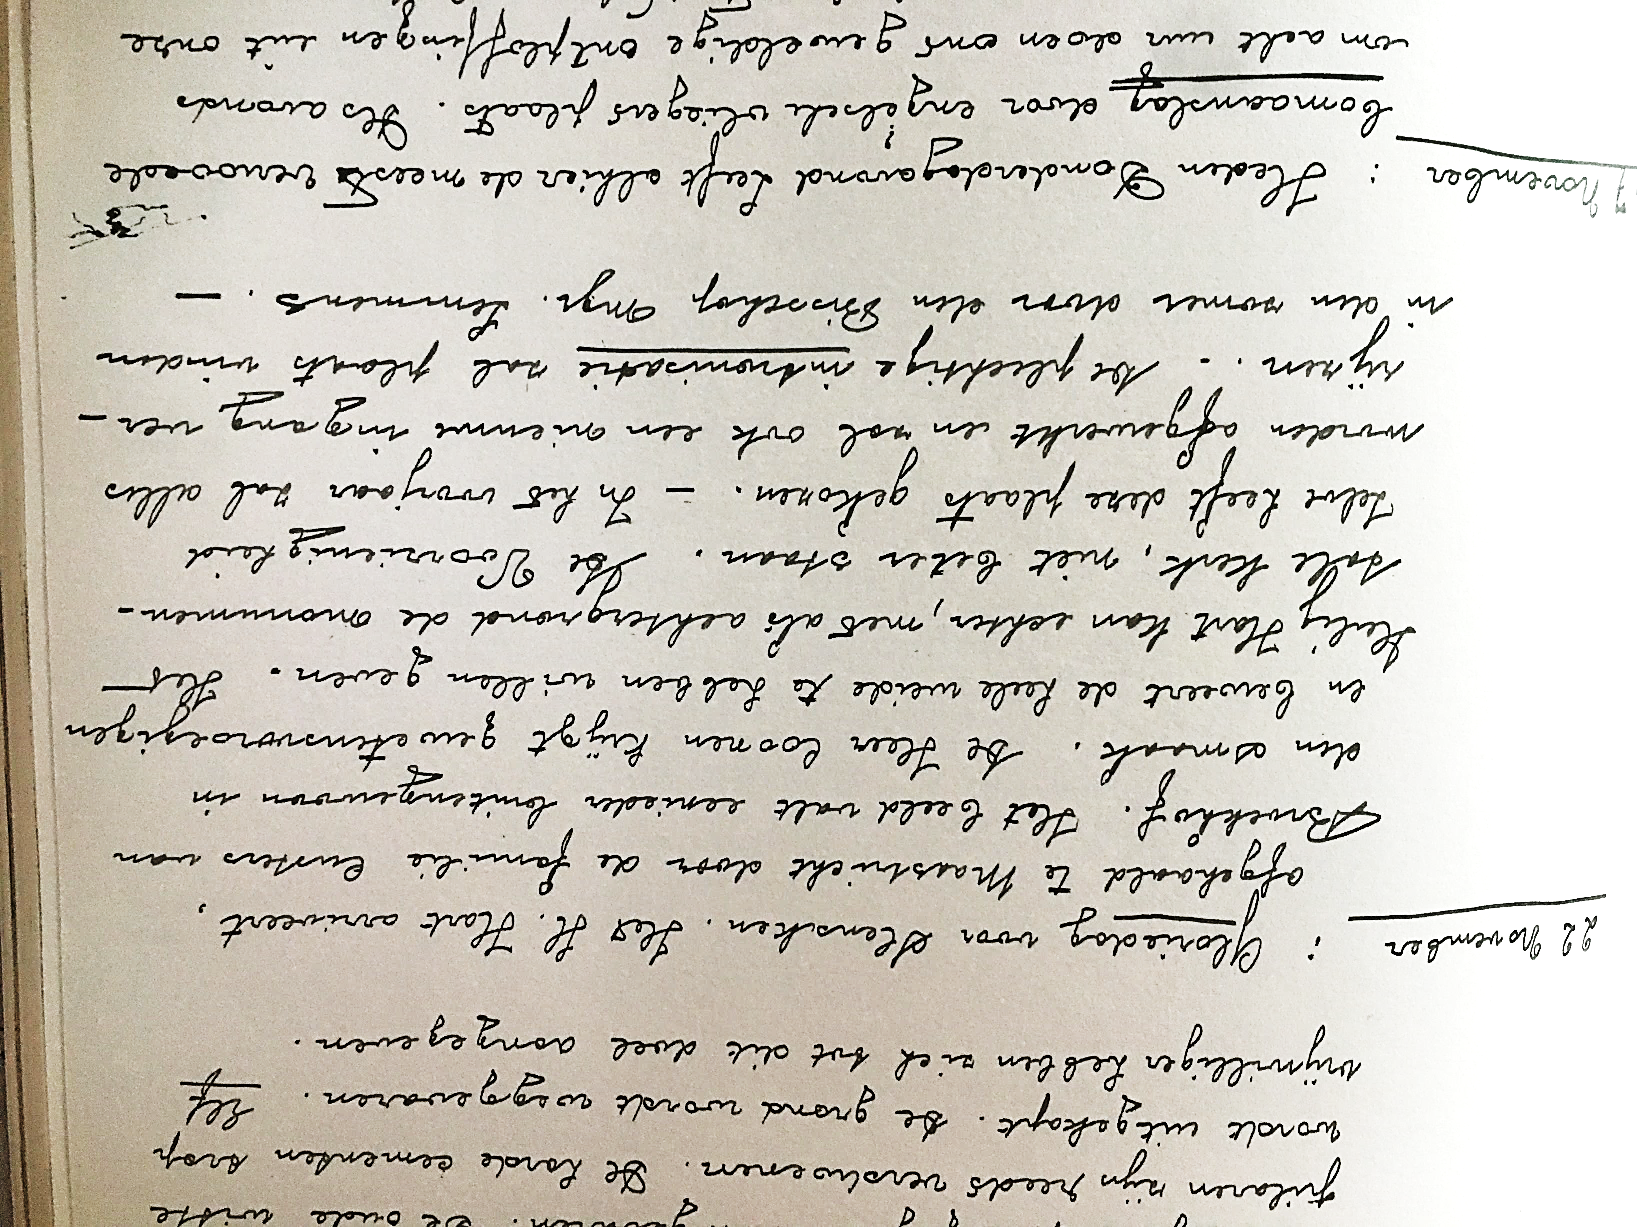 De oude witte
pilaren zijn reeds verdwenen. De harde cementen trap
wordt uitgekapt. De grond wordt weggevaren. Elf
vrijwilliger hebben zich tot dit doel aangegeven.
22 November : Gloriedag voor Slenaken. Het H. Hart arriveert,
afgehaald te Maastricht door de familie Custers van
Broekhof. Het beeld valt eenieder buitengewoon in
den smaak. De Heer Loonen krijgt gewetenswroegingen
en beweert de heele weide te hebben willen geven. Het
Heilig Hart kan echter, met als achtergrond de monumen-
tale kerk, niet beter staan. De Voorzienigheid
zelve heeft deze plaats gekozen. — In het voorjaar zal alles
worden afgewerkt en zal ook een nieuwe ingang ver-
rijzen. - De plechtige intronisatie zal plaats vinden
in den zomer door den Bisschop Mgr. Lemmens. —
November : Heden Donderdagavond heeft alhier de meest verwoede
bomaanslag door engelsch vliegers plaats. Des avonds
om acht uur doen ons geweldige ontploffingen uit onze